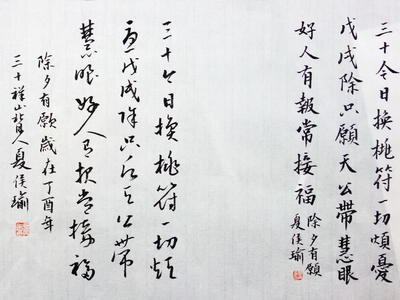 三十今日換桃符一切煩憂
戊戌除只願天公帶慧眼
好人有報常接福
除夕有願
夏侯瑜
三十今日換桃符一切煩
憂戊戌除只願天公帶
慧眼好人有報常接福
除夕有願歲在丁酉年
三十祥山人夏侯瑜